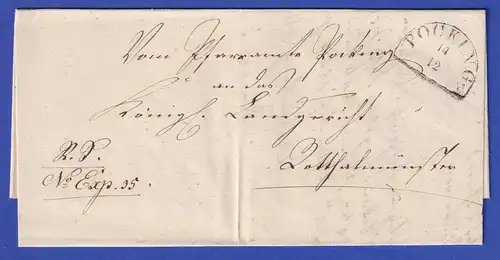 Vom Pfarramte Pocking
POCKING
14
12
an das
Königl. Landgericht
R. S.
Rotthalmünster
No Exp. 35.